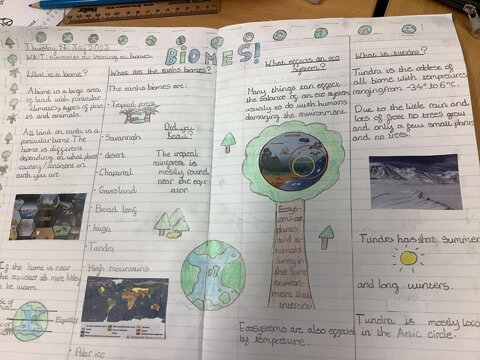 Thursday 7th July 2022
BIOMES!
WALT: summarise our learning on biomes.
What is a biome?
A biome is a large area
of land with particular
climates, types of plan
ts and animals.
All land on earth is a
particular biome. The
biome is different
depending on what place
country / continent on
earth you are
If the biome is near
the equator it's more likley
to be warm.
Equator
What are the earths biomes?
The earths biomes are:
• Tropical rain
• Savannah
• desert
• Chaparral
• Grassland
• Broad leaf
• taiga
• Tundra
• High mountains
• Polar ice
Did you
know?
The tropical
rainforest is
mostly found
near the equ
ator.
What effects an eco
system?
Many things can effect
the balance of an eco system
usually to do with humans
damaging the environment.
Ecosys
tems are
plants
and a
nimals
living in
the same
environ
ment that
interact
Ecosystems are also effected
by tempreture.
What is tundra?
Tundra is the coldest of
all biome with tempretures
ranging from -34° to 6°C.
Due to the little rain and
lots of frost no trees grow
and only a few small plants
and no trees.
Tundra has short, summer
and long winters.
Tundra is mostly loca
in the Artic circle.